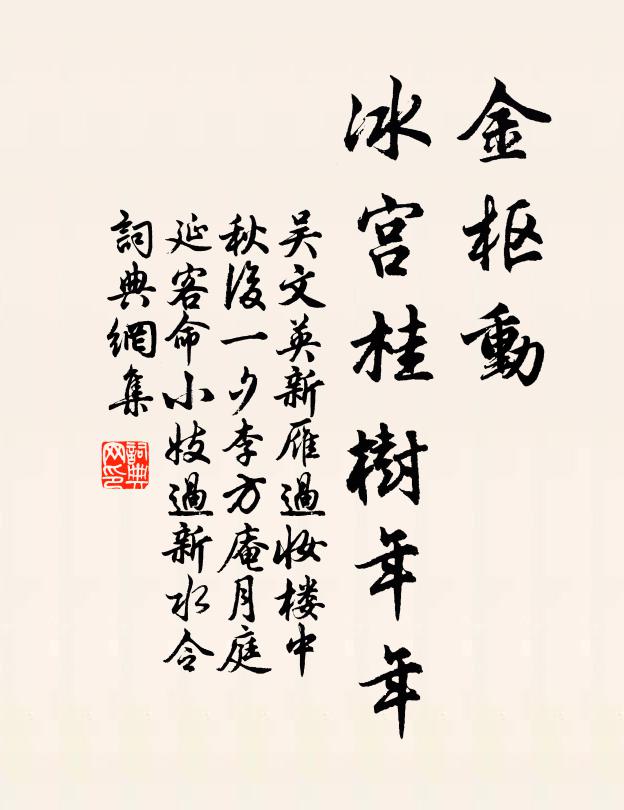 金枢動
冰宫桂樹年年
吴文英新雁過妝楼中
秋後一夕李方庵月庭
延客命小妓過新水令
詞典網集
詞典网印